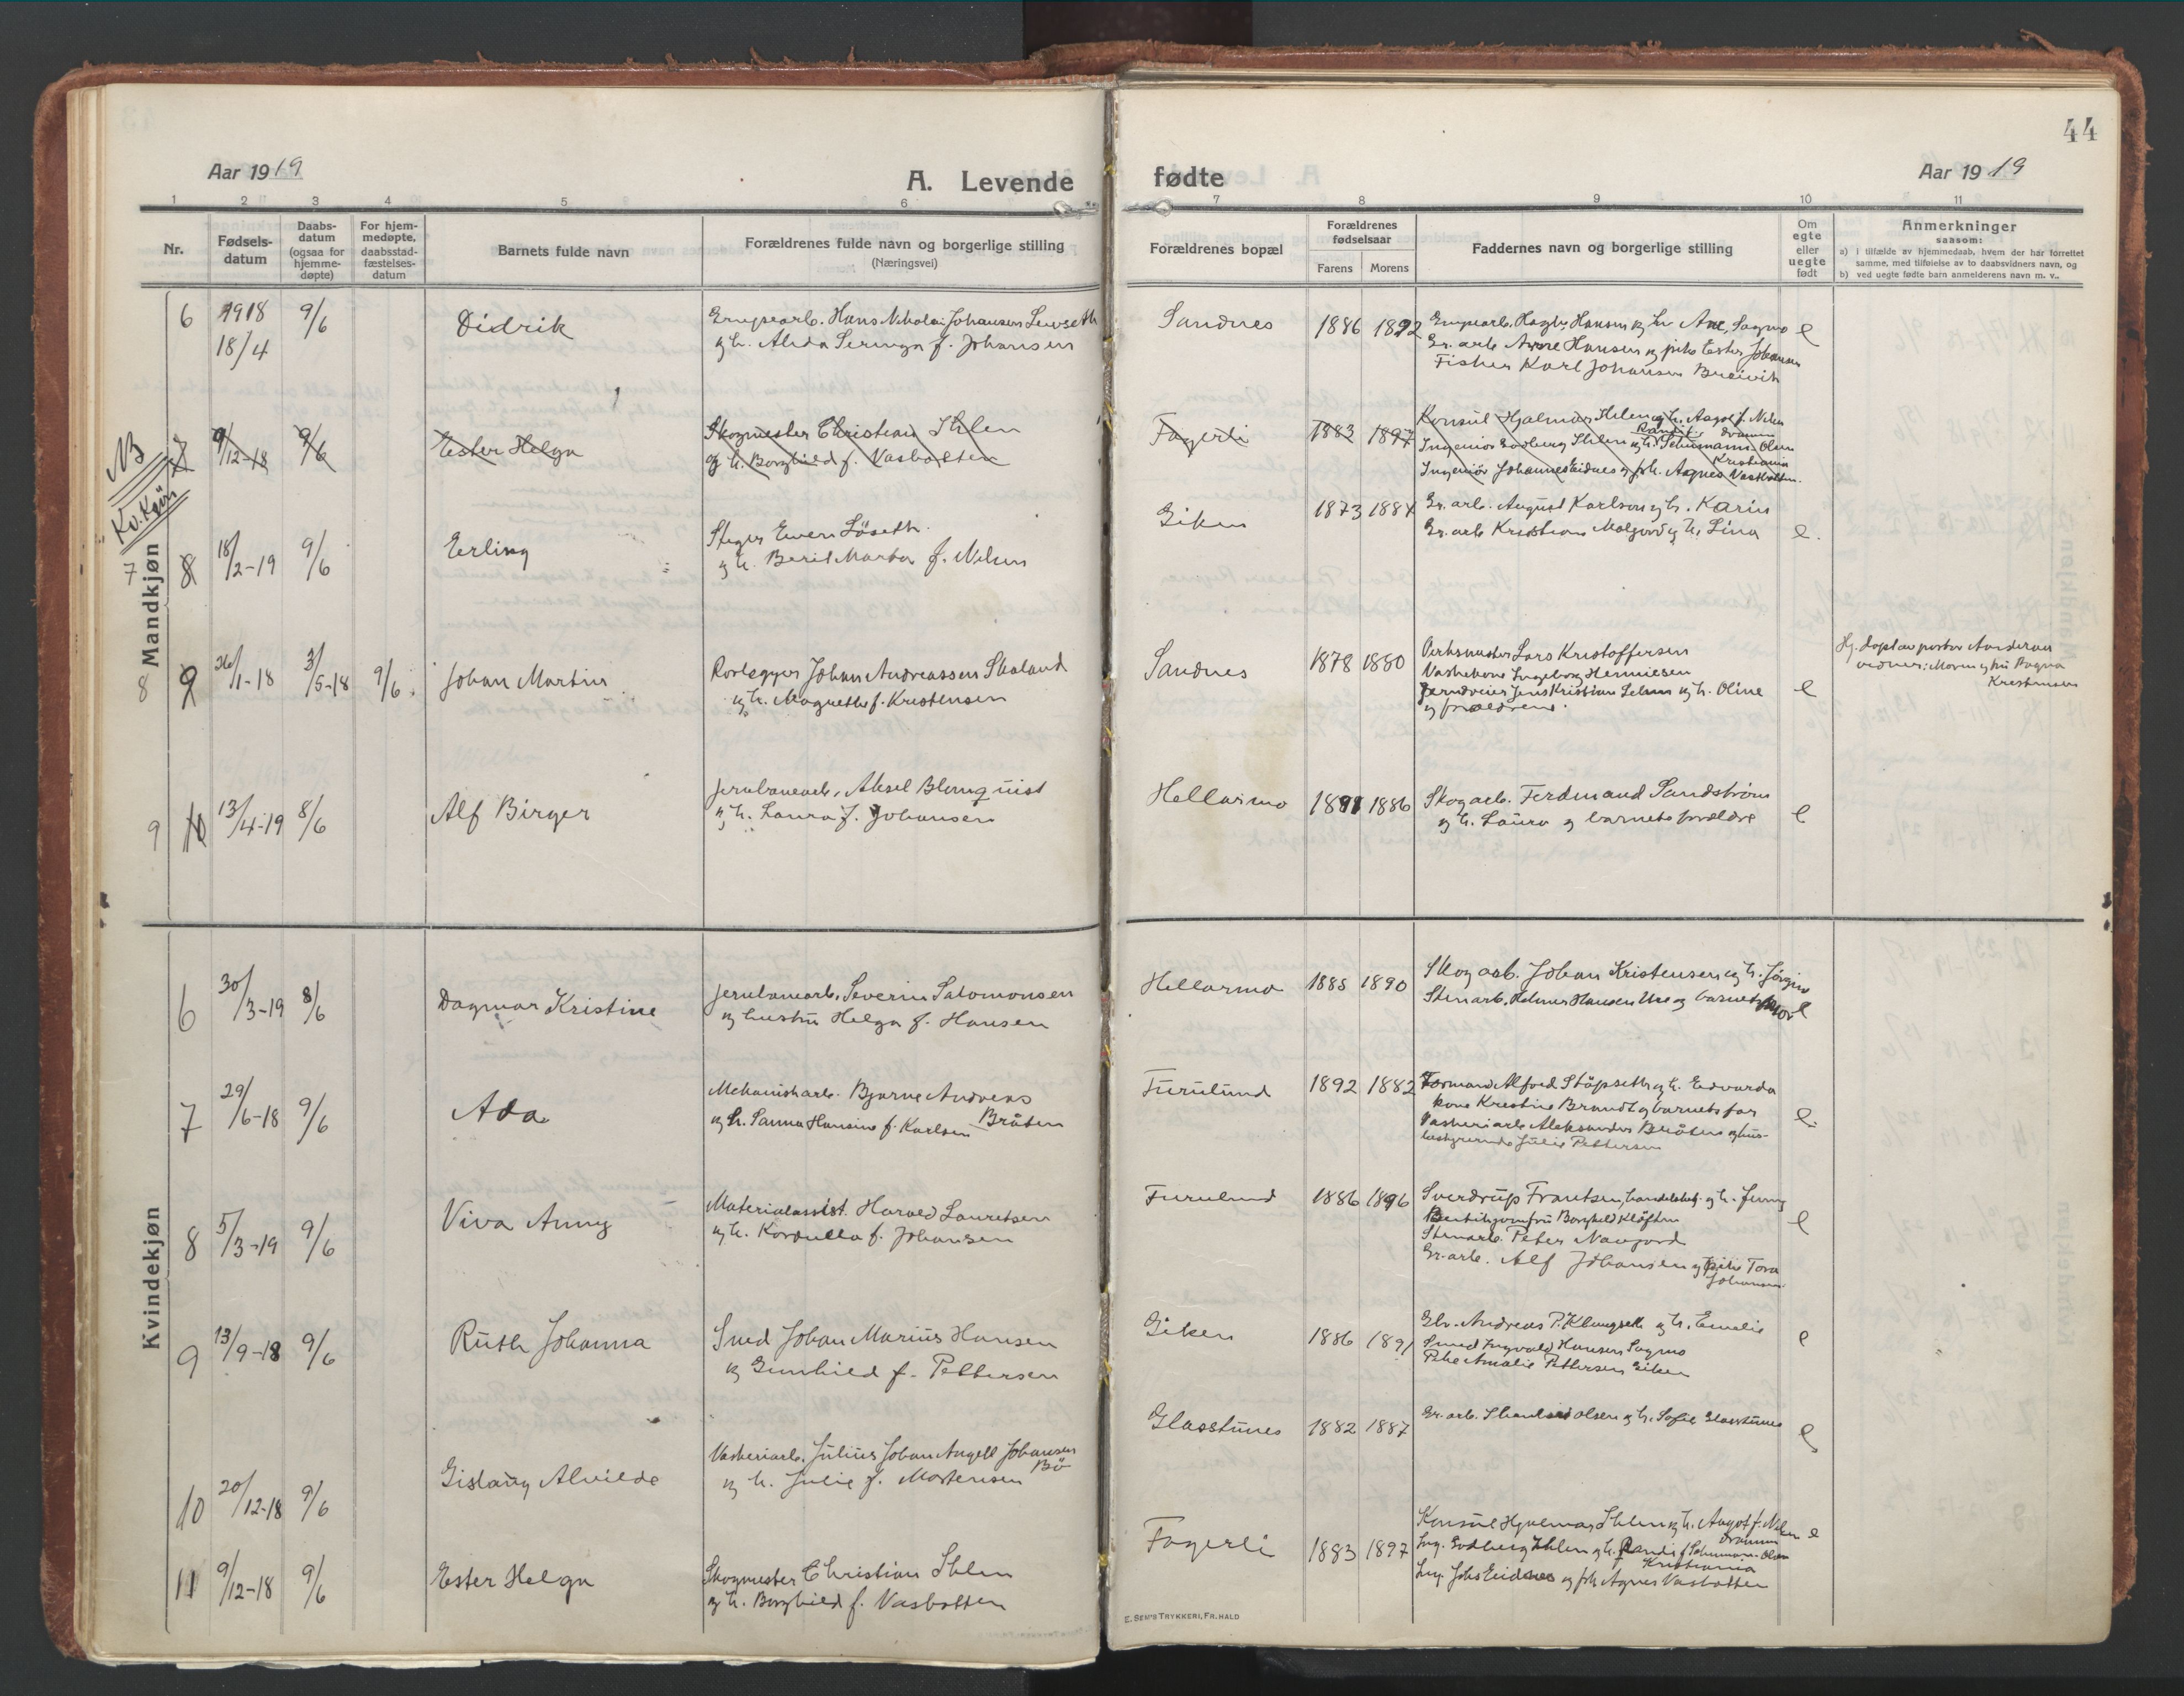 44
Aar 1919
A. Levende
fødte
Aar 1919
1 2 3 4 5 6 7 8 9 10 11
Nr.
Fødsels-
datum
Daabs-
datum
(ogsaa for
hjemme-
døpte)
For hjem-
medøpte,
daabsstad-
fæstelses-
datum
Barnets fulde navn
Forældrenes fulde navn og borgerlige stilling
(Næringsvei)
Forældrenes bopæl
Forældrenes
fødselsaar
Farens Morens
Faddernes navn og borgerlige stilling
Om
egte
eller
uegte
født
Anmerkninger
saasom:
a) i tilfælde av hjemmedaab, hvem der har forrettet
samme, med tilføielse av to daabsvidners navn, og
b) ved uegte fødte barn anmelderens navn m. v..
Mandkjøn
6 1918
18/4 9/6 Didrik
Hans Nikolai Johansen
og h. Alida f. Johansen
Sandnes 1886 1892
Hansen og h. Ane, Sagmo e
Gr. arb. Arne Hansen og pike Ester Johansen
Fisker Karl Johansen Breivik
NB
Kv.Kjön
7 9/12-18 9/6 Ester Helga
Skogmester Christian Ihlen
og h. Borghild f. Vasbotten
Fagerli 1883 1897
Konsul Hjalmar Ihlen og h. Aagot f. Nilsen
Drammen
Ingeniör Eodberg Ihlen og h. Randi f. Schumann-Olsen
Kristiania
Ingeniör Johannes Eidnes og frk. Agnes Vasbotten.
7 8 18/2-19 9/6 Erling
Stiger Even Löseth
og h. Berit Marta f. Nilsen
Giken 1873 1884
Gr. arb. August Karlson og h. Karin
Gr. arb. Kristian og h. Lina e.
8 9 26/1-18 3/5-18 9/6 Johan Martin
Rørlegger Johan Andreassen Skaland
og h. Magnethe f. Kristensen
Sandnes 1878 1880
Verksmester Lars Kristoffersen
Vaskekone Ingeborg Henniesen
Jens Kristian og h. Oline e
og forældrene.
Hj. døpt av pastor Andersen
vidner: Moren og fru Dagna
Kristensen
9 10 13/4-19 8/6 Alf Birger
Jernbanearb. Aksel Blomquist
og h. Laura f. Johansen
Hellarmo 1891 1886
Skogarb. Ferdinand Sandström
og h. Laura og barnets forældre e
Kvindekjøn
6 30/3-19 8/6 Dagmar Kristine
Jernbanearb. Severin Salomonsen
og hustru Helga f. Hansen
Hellarmo 1885 1890
Skogarb. Johan Kristensen og h. Jörgine
Stenarb. Helmer Hansen Ure og barnets mor e
7 29/6-18 9/6 Ada
Mekanisk arb. Bjarne Andreas
Bråten
og h. Sanna Hansine f. Karlsen
Furulund 1892 1882
Formand Alfred Stöpseth og h. Edvarda
kone Kristine Brandt og barnets far
Vaskeriarb. Aleksander Bråten og hus- e.
bestyrerinde Julie Pettersen
8 5/3-19 9/6 Viva Anny
Materialassist. Harald Lauritsen
og h. Kordulla f. Johansen
Furulund 1886 1896
Sverdrup Frantsen, handelsbetj. og h. Jenny
Butikjomfru Borghild Klöften e
Stenarb. Peter Naugord
Gr. arb. Alf Johansen og pike Tora
Johansen
9 13/9-18 9/6 Ruth Johanna
Smed Johan Marius Hansen
og Gunhild f. Pettersen
Giken 1886 1891
Andreas P. Klungseth og h. Emelie e
Smed Ingvald Hansen Sagmo
Pike Amalie Pettersen Giken
10 20/12-18 9/6 Gislaug Alvilde
Vaskeriarb. Julius Johan Angell Johansen
Bö
og h. Julie f. Mortensen
Glasstunes 1882 1887
Gr. arb. Olsen og h. Sofie Glasstunes e
11 9/12-18 9/6 Ester Helga
Skogmester Christian Ihlen
og h. Borghild f. Vasbotten
Fagerli 1883 1897
Konsul Hjalmar Ihlen og h. Aagot f. Nilsen e
Drammen
Ing. Eodberg Ihlen og h. Randi f. Schumann-Olsen
Kristiania
Ing. Johs Eidnes og frk Agnes Vasbotten
E. SEM'S TRYKKERI, FR.HALD